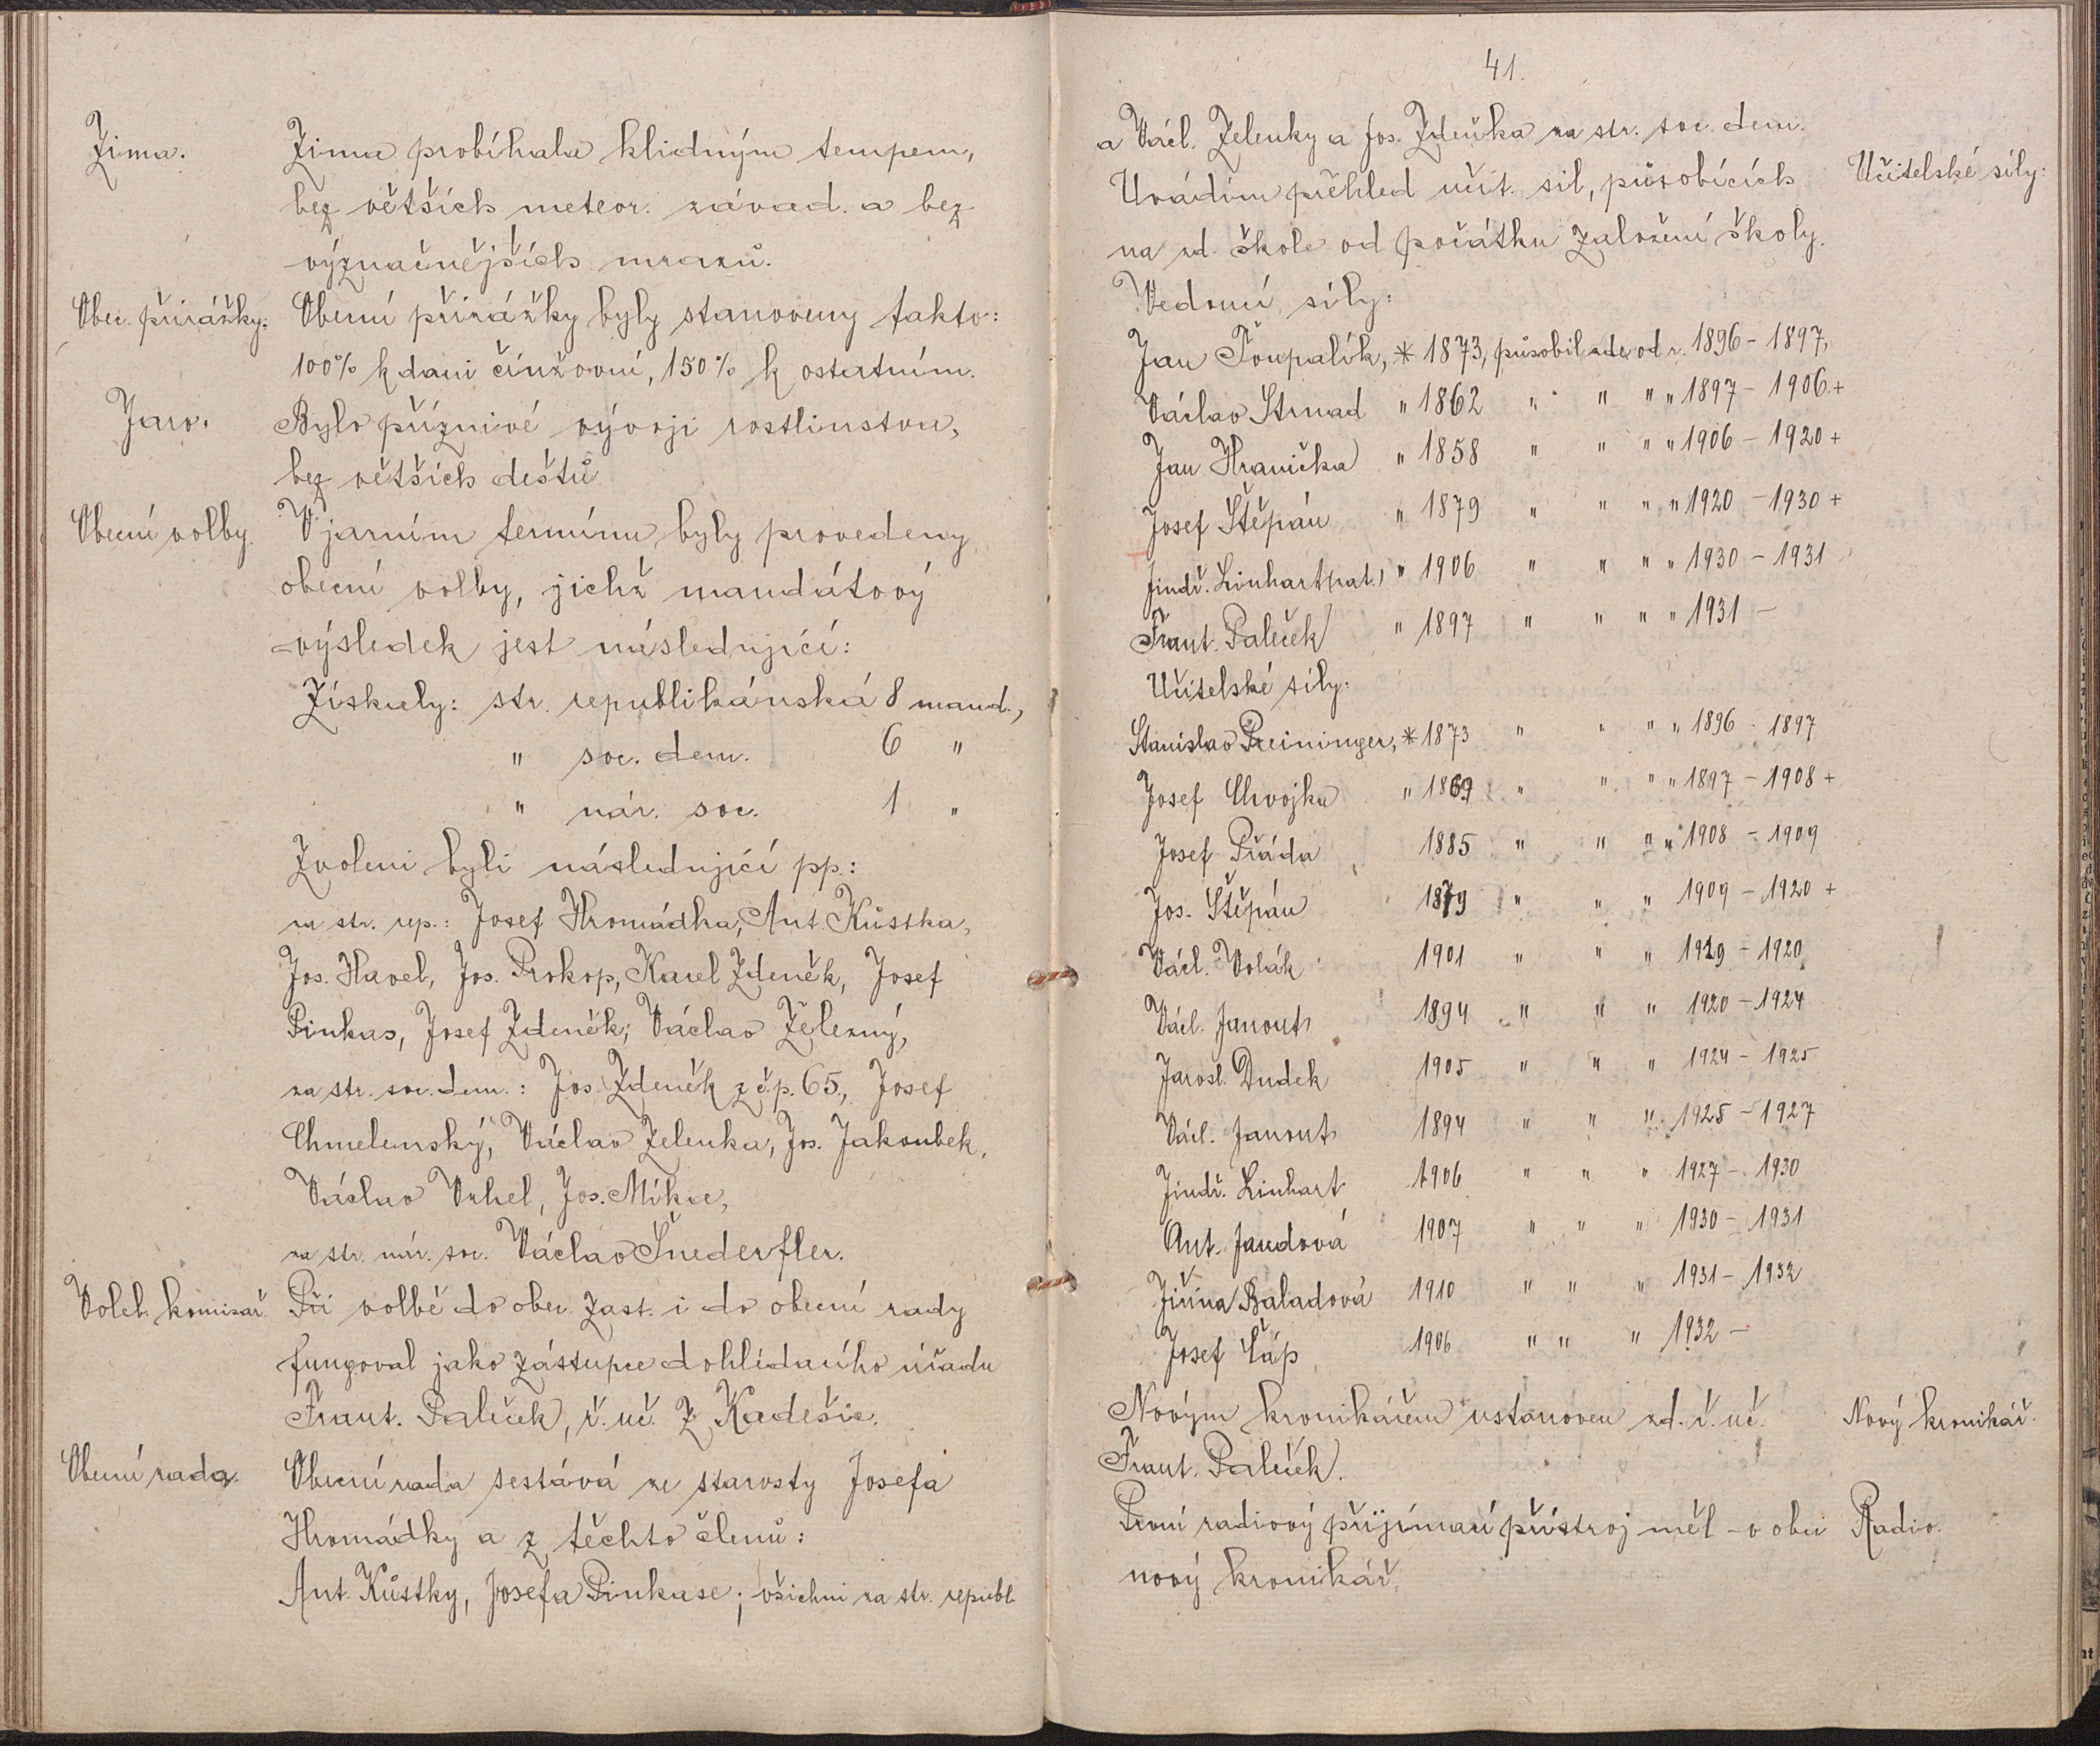 Zima.
Zima probíhala klidným tempem,
bez větších meteor. závad. a bez
význačnějších mrazů.
Obec. přirážky:
Obecní přirážky byly stanoveny takto:
100% k dani činžovní, 150% k ostatním.
Jaro.
Bylo příznivé vývoji rostlinstva,
bez větších deštů
Obecní volby.
V jarním termínu byly provedeny
obecní volby, jichž mandátový
výsledek jest následující:
Získaly: str. republikánská 8 mand.,
" soc. dem. 6 "
" nár. soc. 1 "
Zvoleni byli následující pp.:
za str. rep.: Josef Hromádka, Ant. Kůstka,
Jos. Havel, Jos. Prokop, Karel Zdeněk, Josef
Pinkas, Josef Zdeněk, Václav Železný,
za str. soc. dem.: Jos. Zdeněk z čp. 65., Josef
Chmelenský, Václav Zelenka, Jos. Jakoubek,
Václav Vrhel, Jos. Míka,
za str. nár. soc. Václav Šnederfler.
Voleb. komisař
Při volbě do obec. zast. i do obecní rady
fungoval jako zástupce dohlédacího úřadu
Frant. Paleček, ř. uč. z Kadešic.
Obecní rada.
Obecní rada sestává ze starosty Josefa
Hromádky a z těchto členů:
Ant. Kůstky, Josefa Pinkase; všichni za str. republ.
41.
a Václ. Zelenky a Jos. Zdeňka za str. soc. dem.
Učitelské síly:
Uvádím přehled učit. sil, působících
na zd. škole od počátku založení školy.
Vedoucí síly:
Jan Toupalík, * 1873, působil zde od r. 1896 - 1897,
Václav Strnad " 1862 " " " " 1897 - 1906 +
Jan Hranička " 1858 " " " " 1906 - 1920 +
Josef Štěpán " 1879 " " " " 1920 - 1930 +
Jindř. Linhart (zat.) " 1906 " " " " 1930 - 1931
Frant. Paleček " 1897 " " " " 1931 -
Učitelské síly:
Stanislav Preininger, * 1873 " " " " 1896 - 1897
Josef Chvojka " 1869 " " " " 1897 - 1908 +
Josef Přáda 1885 " " " " 1908 - 1909
Jos. Štěpán 1879 " " " 1909 - 1920 +
Václ. Volák 1901 " " " 1919 - 1920
Václ. Janout 1894 " " " 1920 - 1924
Jarosl. Dudek 1905 " " " 1924 - 1925
Václ. Janout 1894 " " " 1925 - 1927
Jindř. Linhart 1906 " " " 1927 - 1930
Ant. Jandová 1907 " " " 1930 - 1931
Jiřina Baladová 1910 " " " 1931 - 1932
Josef Čáp 1906 " " " 1932 -
Novým kronikářem ustanoven zd. ř. uč.
Nový kronikář.
Frant. Paleček.
První radiový přijímací přístroj měl v obci
Radio.
nový kronikář.